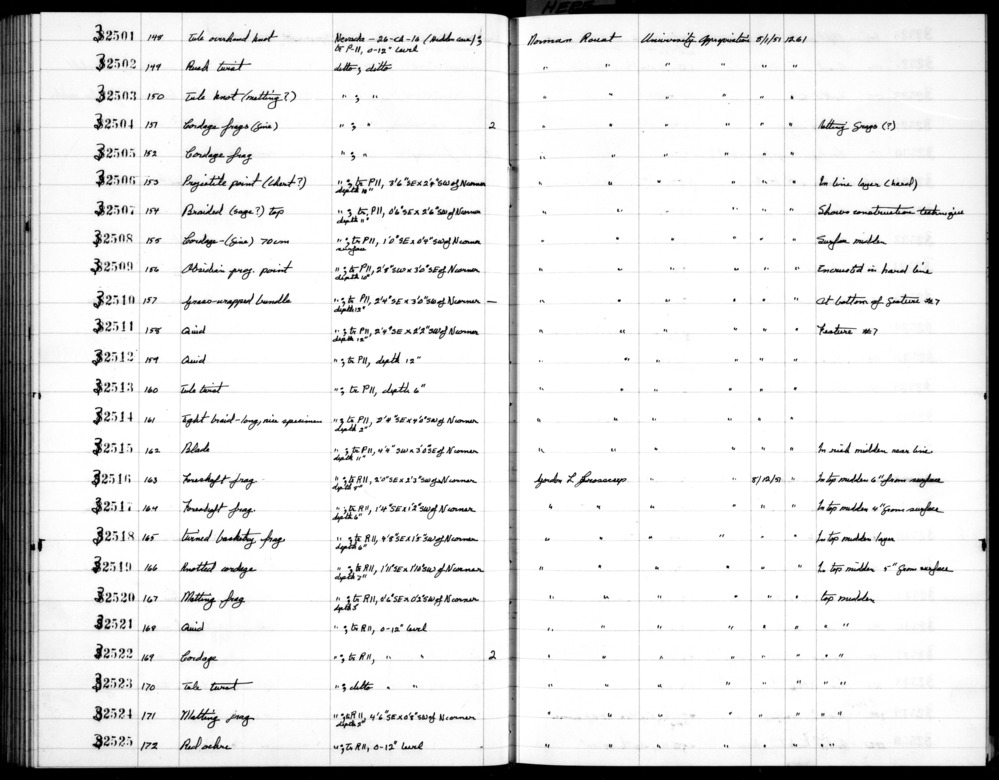 HERE
32501 148 Tule overhand knot Nevada - 26-Ch-16 (Hidden Cave); Norman Roust University Appropriation 8/11/51 1261
to P-11, 0-12" level
32502 149 Rush twist ditto; ditto " " " " " "
32503 150 Tule knot (matting?) "; " " " " " " "
32504 151 Cordage frags (fine) "; " 2 " " " " " " Netting frags (?)
32505 152 Cordage frag "; " " " " " " "
32506 153 Projectile point (chert?) "; to P11, 3'6"SE x 2'4"SW of N corner " " " " " " In lime layer (hard)
depth 10"
32507 154 Braided (sage?) top "; to P11, 0'6"SE x 2'6"SW of N corner " " " " " " Shows construction technique
depth 11"
32508 155 Cordage-(fine) 70 cm "; to P11, 1'0"SE x 0'4"SW of N corner " " " " " " Surface midden
surface
32509 156 Obsidian proj. point "; to P11, 2'8"SW x 3'0"SE of N corner " " " " " " Encrusted in hard lime
depth 10"
32510 157 Grass-wrapped bundle "; to P11, 2'4"SE x 3'0"SW of N corner — " " " " " " At bottom of feature #7
depth 12"
32511 158 Quid "; to P11, 2'4"SE x 2'2"SW of N corner " " " " " " Feature #7
depth 12"
32512 159 Quid "; to P11, depth 12" " " " " " "
32513 160 Tule twist "; to P11, depth 6" " " " " " "
32514 161 Tight braid-long, nice specimen "; to P11, 2'4"SE x 4'6"SW of N corner " " " " " "
depth 2"
32515 162 Blade "; to P11, 4'4"SW x 3'0"SE of N corner " " " " " " In midden near lime
depth 11"
32516 163 Foreshaft frag "; to R11, 2'0"SE x 2'3"SW of N corner Gordon L Grosscup " " 8/12/51 " In top midden 6" from surface
32517 164 Foreshaft frag. "; to R11, 1'4"SE x 1'2"SW of N corner " " " " " " In top midden 4" from surface
depth 6"
32518 165 Twined basketry frag "; to R11, 4'8"SE x 1'8"SW of N corner " " " " " " In top midden layer
depth 6"
32519 166 Knotted cordage "; to R11, 1'11"SE x 1'10"SW of N corner " " " " " " In top midden 5" from surface
depth 7"
32520 167 Matting frag "; to R11, 4'6"SE x 0'3"SW of N corner " " " " " " top midden
32521 168 Quid "; to R11, 0-12" level " " " " " " " "
32522 169 Cordage "; to R11, " " 2 " " " " " " " "
32523 170 Tule twist "; ditto " " " " " " " " " "
32524 171 Matting frag "; to R11, 4'6"SE x 0'8"SW of N corner " " " " " " " "
32525 172 Red ochre "; to R11, 0-12" level " " " " " " " "